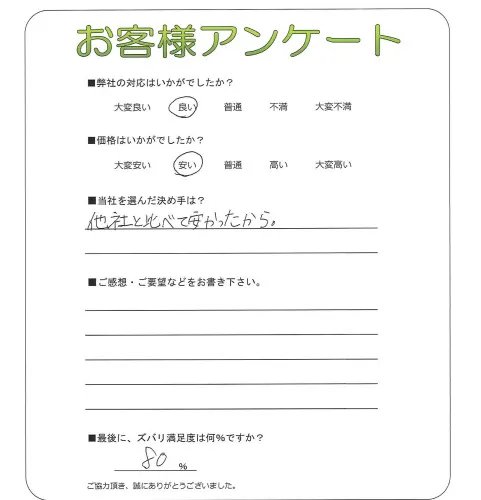 お客様アンケート
■弊社の対応はいかがでしたか？
大変良い 良い 普通 不満 大変不満
■価格はいかがでしたか？
大変安い 安い 普通 高い 大変高い
■当社を選んだ決め手は？
他社と比べて安かったから。
■ご感想・ご要望などをお書き下さい。
■最後に、ズバリ満足度は何%ですか？
80 %
ご協力頂き、誠にありがとうございました。